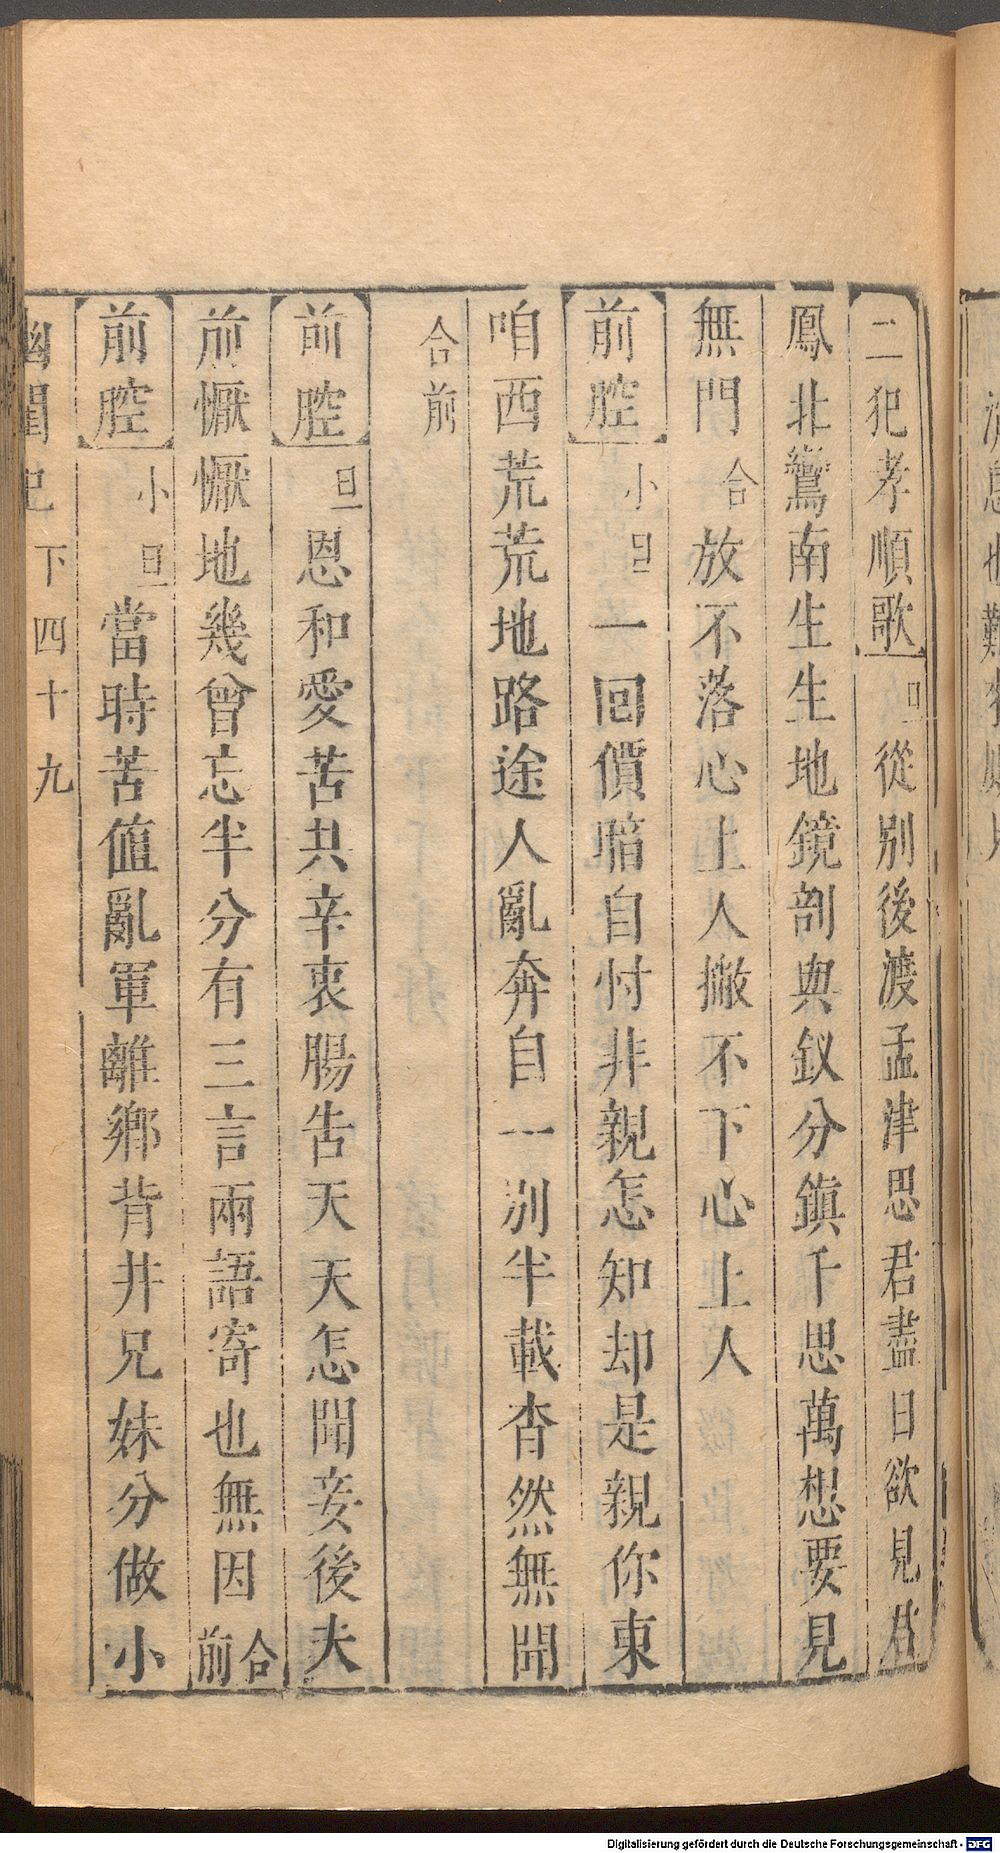 二犯孝順歌旦從別後渡孟津思君盡日欲見君
鳳北鸞南生生地鏡剖與釵分鎮千思萬想要見
無門合放不落心上人撇不下心上人
前腔小旦一回價暗自忖非親怎知却是親你東
咱西荒荒地路途人亂奔自一別半載杳然無聞
合前
前腔旦恩和愛苦共辛衷腸告天天怎聞妾後夫
前懨懨地幾曾忘半分有三言兩語寄也無因合前
前腔小旦當時苦值亂軍離鄉背井兄妹分做小
幽閨記下四十九
Digitalisierung gefördert durch die Deutsche Forschungsgemeinschaft - DFG